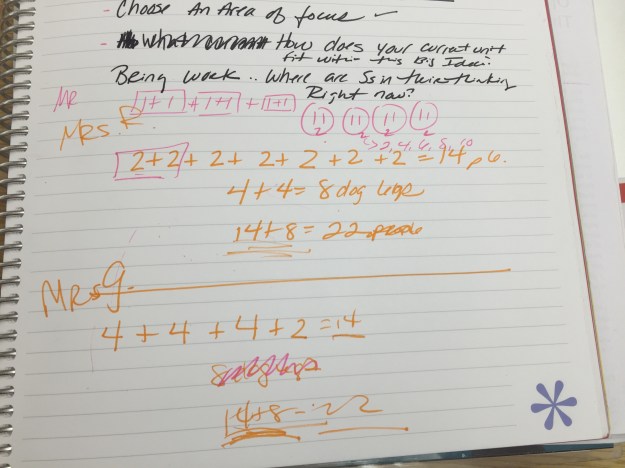 - Choose An Area of focus ✓
- How does your current unit
fit within this Big Idea?
Being work.. Where are Ss in their thinking
Right now?
MR 1+1 + 1+1 + 1+1
11 11 11 11
2 2 2 2
→ 2, 4, 6, 8, 10
Mrs. F.
2+2+2+2+2+2+2=14 p.l.
4+4=8 dog legs
14+8=22
Mrs G.
4+4+4+2=14
14+8=22